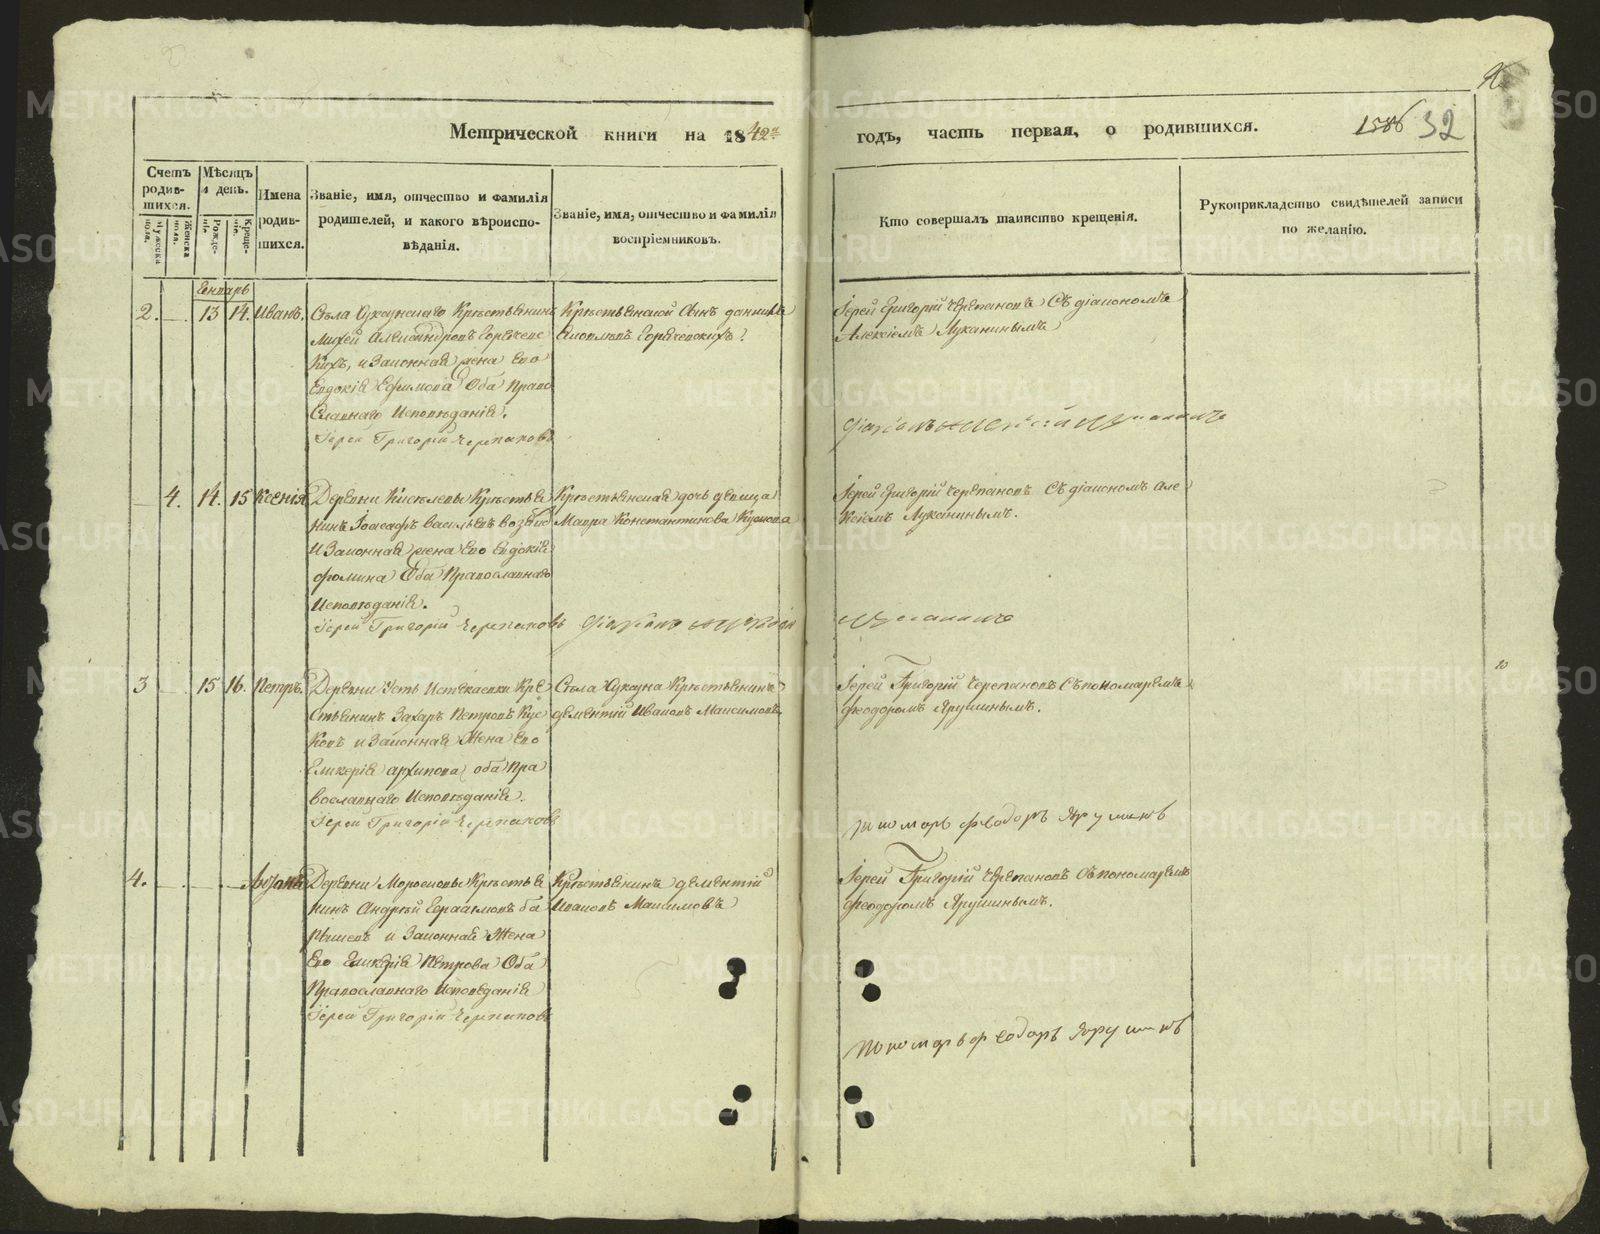 Метрической книги на 1842й
годъ, часть первая, о родившихся.
1586 32
Счетъ родившихся.
Мужеска пола.
Женска пола.
Мѣсяцъ и день.
Рожденіе.
Крещеніе.
Имена родившихся.
Званіе, имя, отчество и фамилія
родителей, и какого вѣроиспо-
вѣданія.
Званіе, имя, отчество и фамилія
воспріемниковъ.
Кто совершалъ таинство крещенія.
Рукоприкладство свидѣтелей записи
по желанію.
Генварь
2. 13 14. Иванъ.
Села Суксунскаго Крестьянинъ
Александровъ
и Законная жена Его
Евдокія Ефимова Оба Право
Славнаго Исповѣданія.
Іерей Григорій Черепановъ
Крестьянской Сынъ
Іерей Григорій Черепановъ Съ діакономъ
Алексіемъ Луканинымъ
4. 14. 15 Ксенія
Деревни Киселевы Крестья
нинъ Іоасафъ Васильевъ
И Законная жена Его Евдокія
Фомина Оба Православнаго
Исповѣданія.
Іерей Григорій Черепановъ
Крестьянская дочь девица
Мавра Константинова
Іерей Григорій Черепановъ Съ діакономъ Але
ксіемъ Луканинымъ.
3 15 16. Петръ.
Деревни Усть Истекаевки Кре
стьянинъ Захаръ Петровъ Кус
ковъ и Законная Жена Его
Гликерія Архипова оба Пра
вославнаго Исповѣданія.
Іерей Григорій Черепановъ
Села Суксуна Крестьянинъ
Дементій Ивановъ Максимовъ
Іерей Григорій Черепановъ Съ пономаремъ
Феодоромъ Ярушинымъ.
пономарь Феодоръ Ярушинъ
4.
Деревни Морозковы Крестья
нинъ Андрей
и Законная Жена
Его Гликерія Петрова Оба
Православнаго Исповѣданія
Іерей Григорій Черепановъ
Крестьянинъ Дементій
Ивановъ Максимовъ
Іерей Григорій Черепановъ Съ пономаремъ
Феодоромъ Ярушинымъ.
пономарь Феодоръ Ярушинъ
METRIKI.GASO-URAL.RU